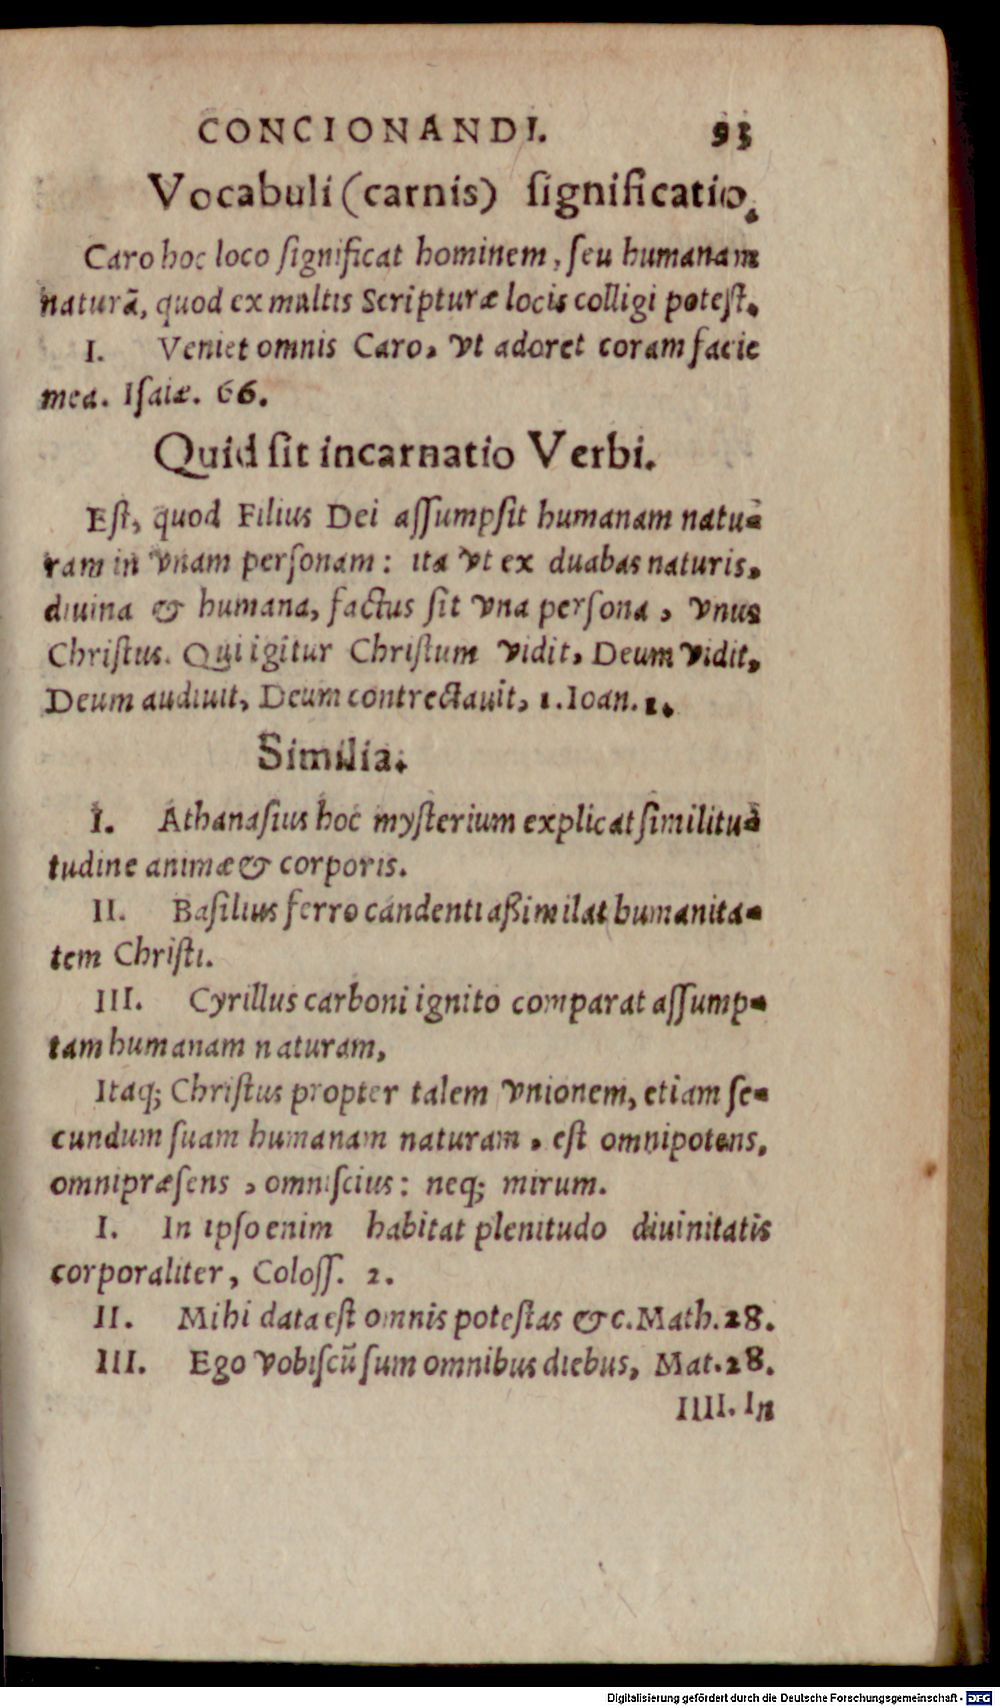 CONCIONANDI. 93
Vocabuli (carnis) ſignificatio.
Caro hoc loco ſignificat hominem, ſeu humanam
naturā, quod ex multis Scripturæ locis colligi poteſt.
I. Veniet omnis Caro, vt adoret coram facie
mea. Iſaiæ. 66.
Quid ſit incarnatio Verbi.
Eſt, quod Filius Dei aſſumpſit humanam natu-
ram in vnam perſonam: ita vt ex duabas naturis,
diuina & humana, factus ſit vna perſona, vnus
Chriſtus. Qui igitur Chriſtum vidit, Deum vidit,
Deum audiuit, Deum contrectauit, 1. Ioan. 1.
Similia.
I. Athanaſius hoc myſterium explicat ſimilitu-
tudine animæ & corporis.
II. Baſilius ferro candenti aßimilat humanita-
tem Chriſti.
III. Cyrillus carboni ignito comparat aſſump-
tam humanam naturam,
Itaq; Chriſtus propter talem vnionem, etiam ſe-
cundum ſuam humanam naturam, eſt omnipotens,
omnipræſens, omniſcius: neq; mirum.
I. In ipſo enim habitat plenitudo diuinitatis
corporaliter, Coloſſ. 2.
II. Mihi data eſt omnis poteſtas &c. Math. 28.
III. Ego vobiſcū ſum omnibus diebus, Mat. 28.
IIII. In
Digitalisierung gefördert durch die Deutsche Forschungsgemeinschaft - DFG